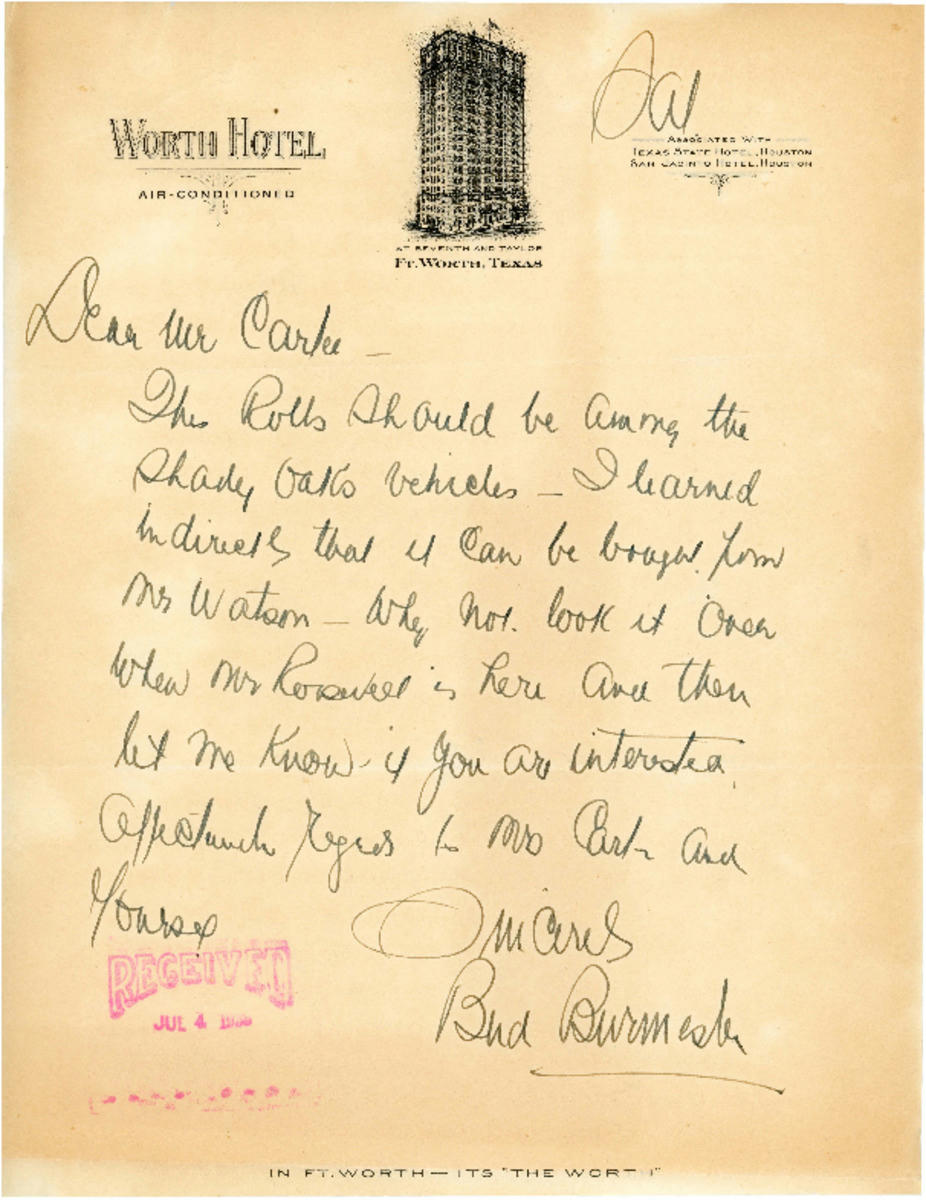 WORTH HOTEL
AIR-CONDITIONED
AT SEVENTH AND TAYLOR
FT. WORTH, TEXAS
ASSOCIATED WITH
TEXAS STATE HOTEL, HOUSTON
SAN JACINTO HOTEL, HOUSTON
Dear Mr Carter –
This Rolls should be among the
Shady Oaks Vehicles – I learned
indirectly that it can be bought from
Mr Watson – Why not look it over
when Mr Roosevelt is here and then
let me know if you are interested.
Affectionate Regards to Mrs Carter and
Yourself
Sincerely
Bud Burmester
RECEIVED
JUL 4
IN FT. WORTH — ITS "THE WORTH"